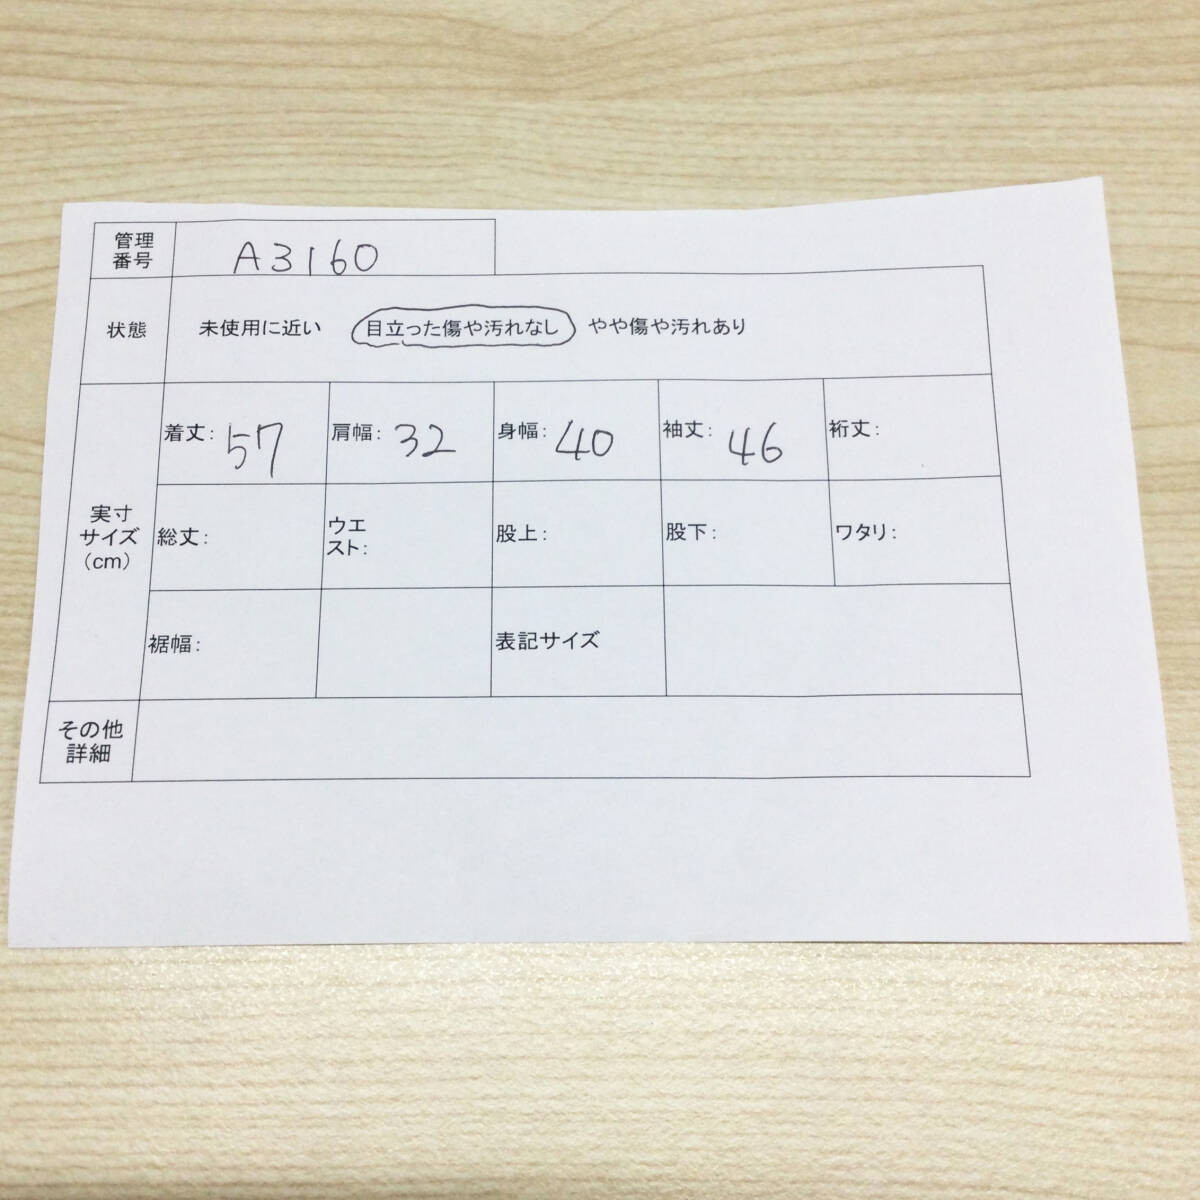 管理
番号
A3160
状態
未使用に近い 目立った傷や汚れなし やや傷や汚れあり
実寸
サイズ
(cm)
着丈: 57
肩幅: 32
身幅: 40
袖丈: 46
裄丈:
総丈:
ウエ
スト:
股上:
股下:
ワタリ:
裾幅:
表記サイズ
その他
詳細